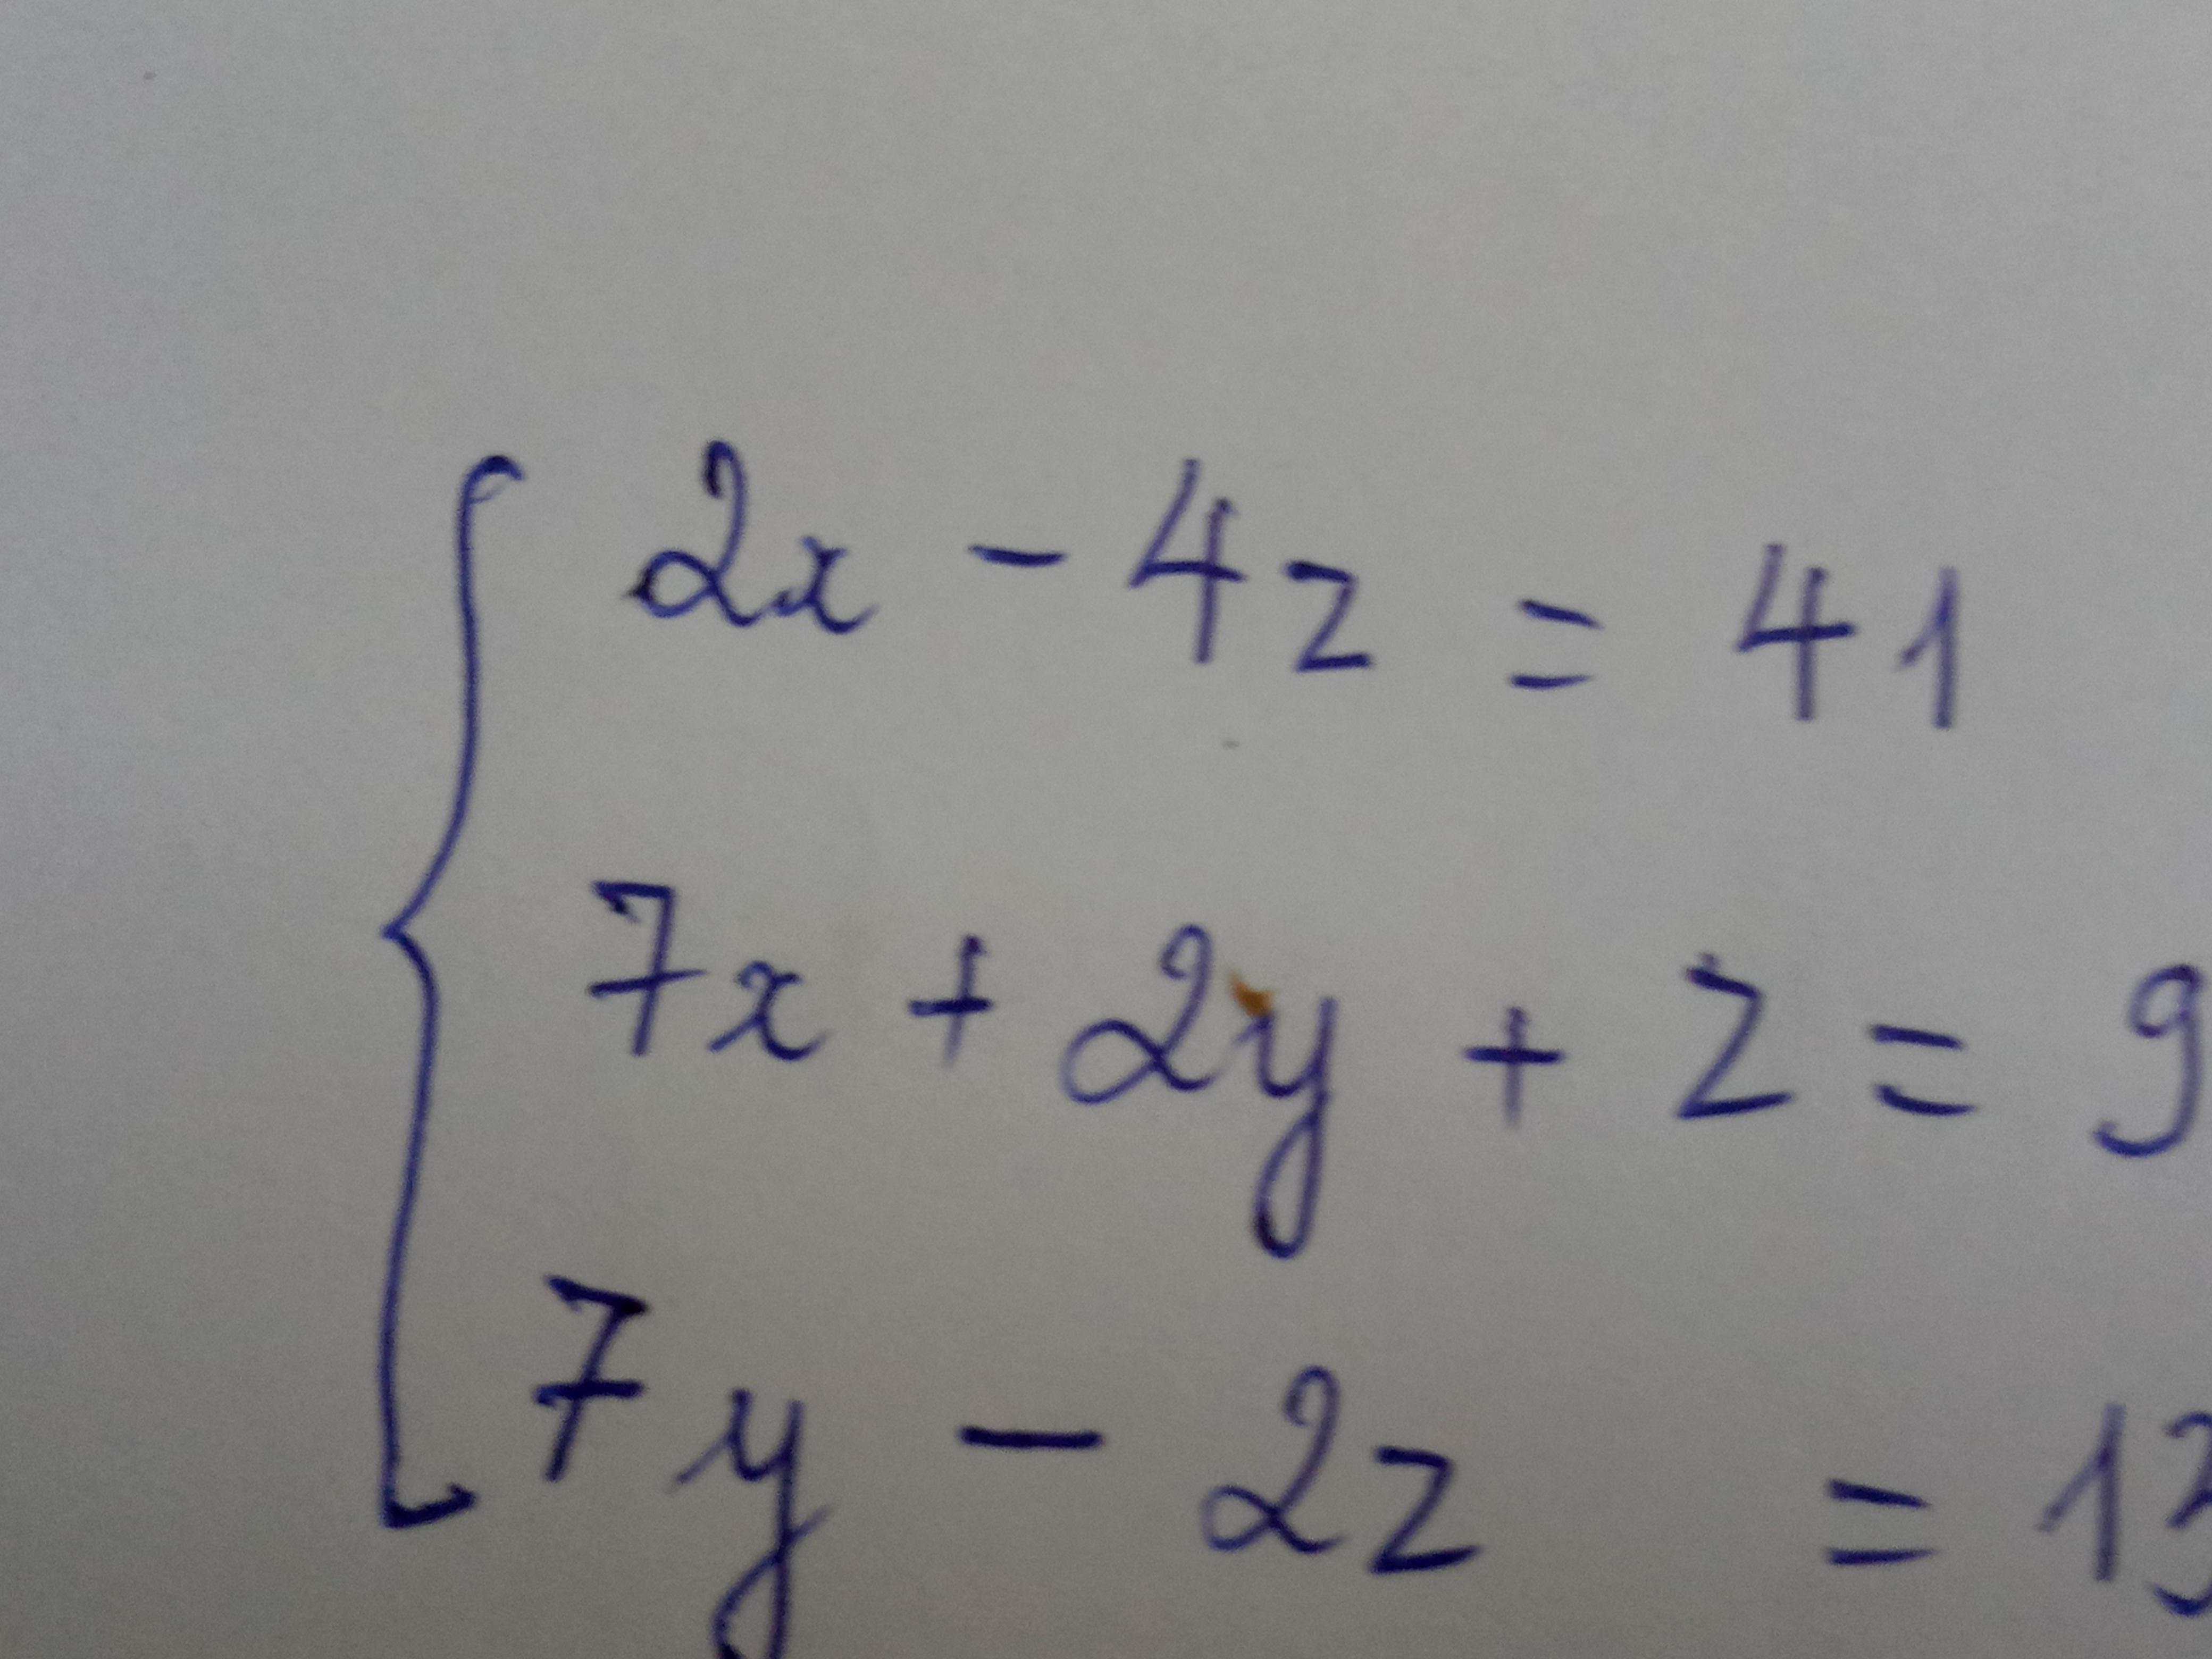 2x - 4z = 41
7x + 2y + z = 9
7y - 2z = 13